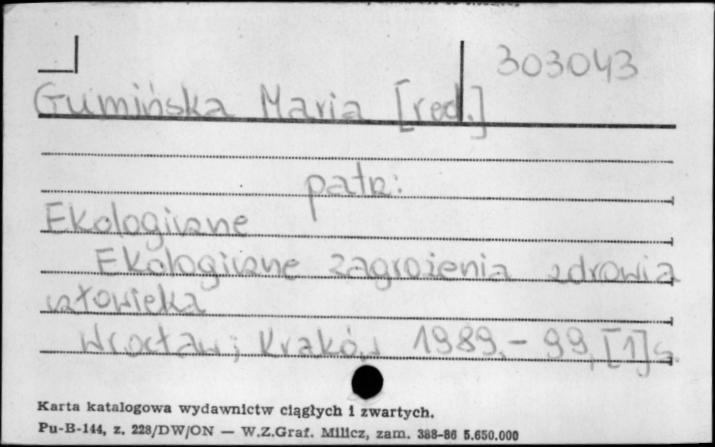 303043
Gumińska Maria [red.]
patrz:
Ekologiczne
Ekologiczne zagrożenia zdrowia
człowieka
Wrocław; Kraków 1989.- 99, [1] s.
Karta katalogowa wydawnictw ciągłych i zwartych.
Pu-B-144, z. 228/DW/ON — W.Z.Graf. Milicz, zam. 388-86 5.650.000